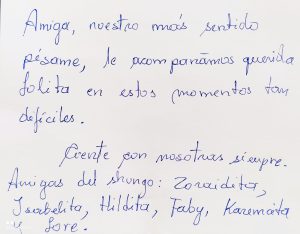 Amiga, nuestro más sentido
pésame, te acompañamos querida
Lolita en estos momentos tan
difíciles.
Cuente con nosotras siempre.
Amigas del shungo: Zoraidita,
Isabelita, Hildita, Faby, Karemcita
y Lore.